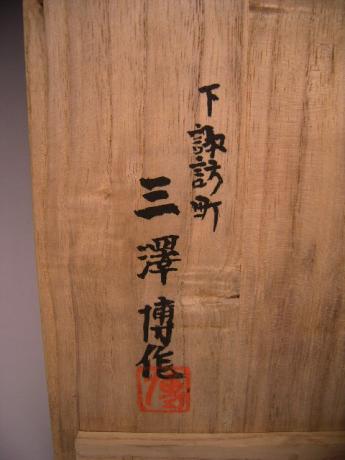 下諏訪町
三澤博作